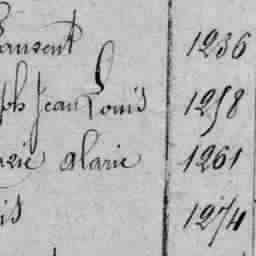 1236
ph Jean Louis 1258
rie Marie 1261
is 1274